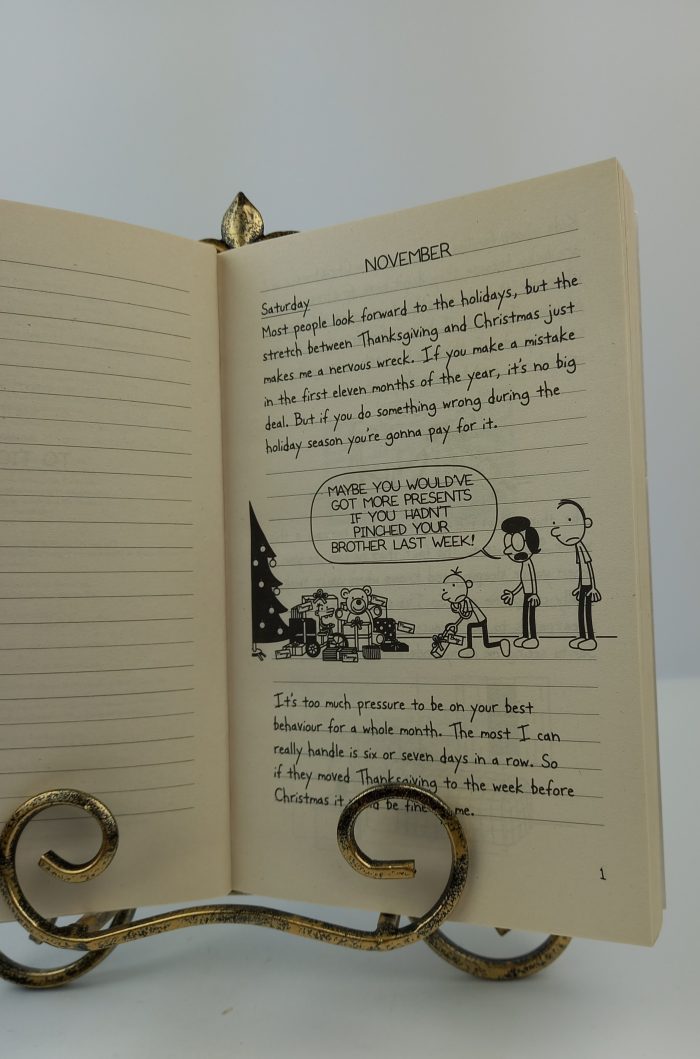 NOVEMBER
Saturday
Most people look forward to the holidays, but the
stretch between Thanksgiving and Christmas just
makes me a nervous wreck. If you make a mistake
in the first eleven months of the year, it's no big
deal. But if you do something wrong during the
holiday season you're gonna pay for it.
MAYBE YOU WOULD'VE
GOT MORE PRESENTS
IF YOU HADN'T
PINCHED YOUR
BROTHER LAST WEEK!
It's too much pressure to be on your best
behaviour for a whole month. The most I can
really handle is six or seven days in a row. So
if they moved Thanksgiving to the week before
Christmas it be fine me.
1